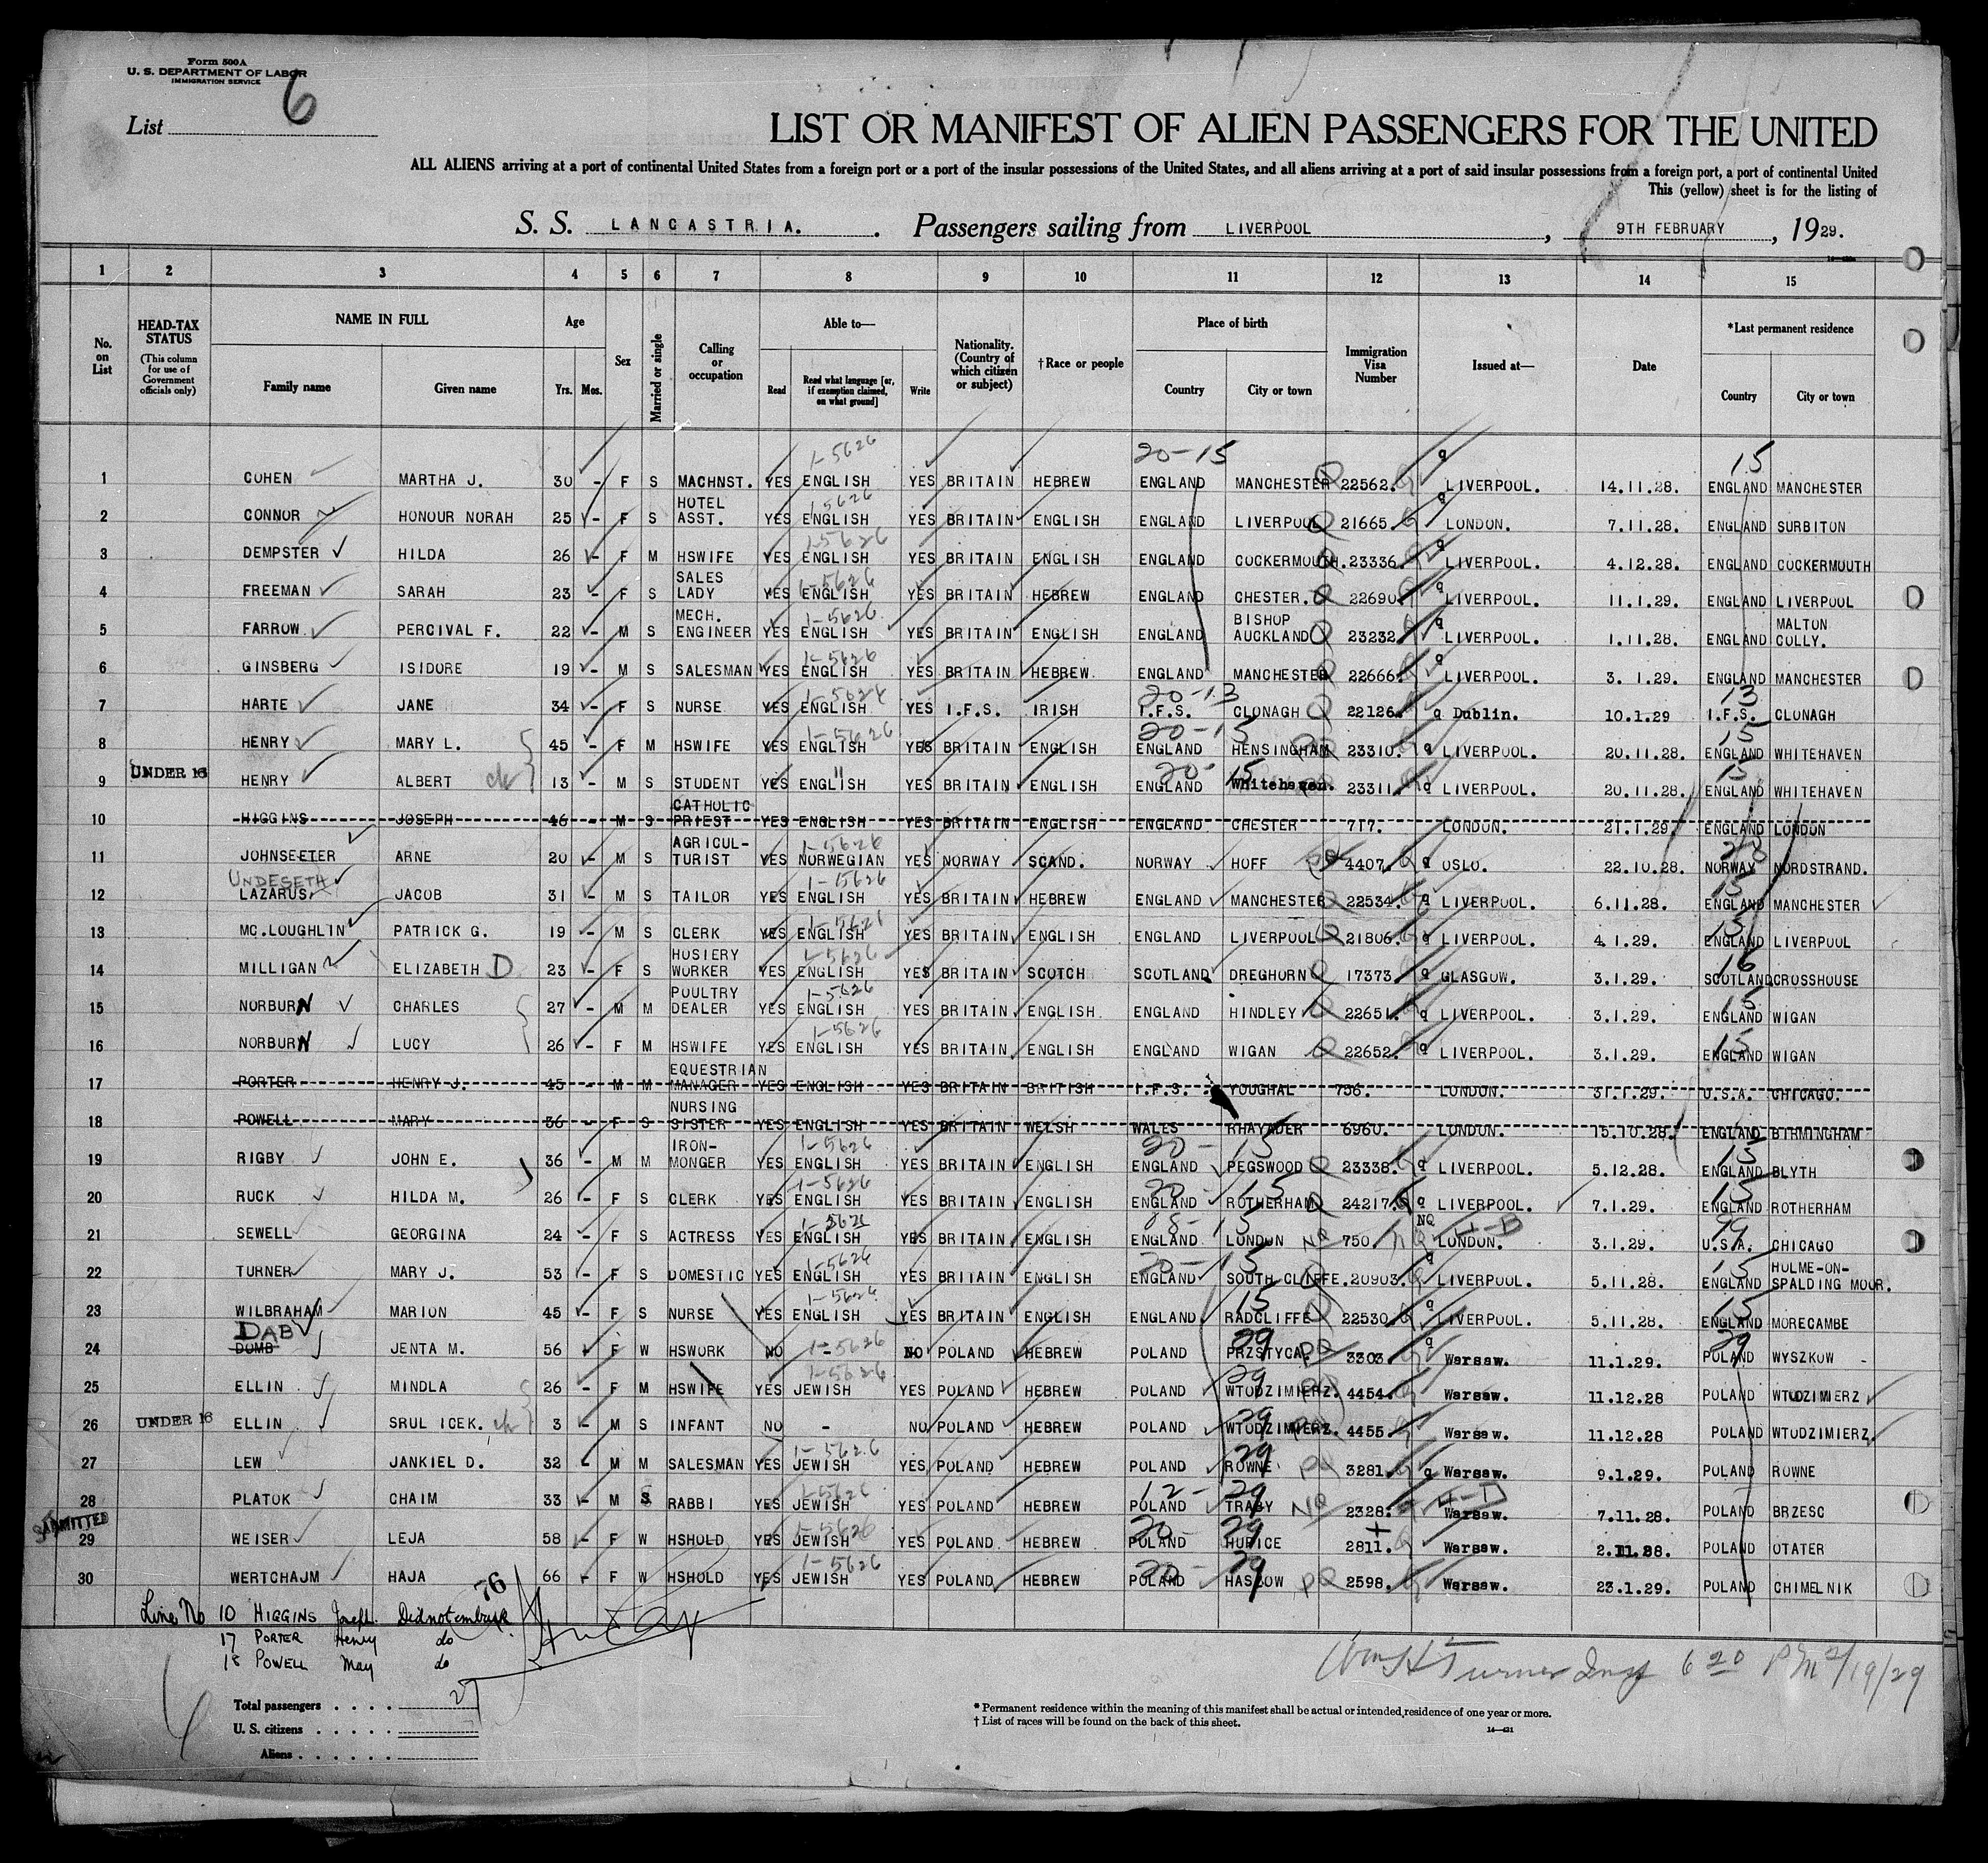 Form 500A
U. S. DEPARTMENT OF LABOR
IMMIGRATION SERVICE
List 6
LIST OR MANIFEST OF ALIEN PASSENGERS FOR THE UNITED
ALL ALIENS arriving at a port of continental United States from a foreign port or a port of the insular possessions of the United States, and all aliens arriving at a port of said insular possessions from a foreign port, a port of continental United
This (yellow) sheet is for the listing of
S. S. LANCASTRIA. Passengers sailing from LIVERPOOL, 9TH FEBRUARY, 1929.
1 2 3 4 5 6 7 8 9 10 11 12 13 14 15
No. on List
HEAD-TAX STATUS (This column for use of Government officials only)
NAME IN FULL Family name Given name
Age Yrs. Mos.
Sex
Married or single
Calling or occupation
Able to— Read Read what language [or, if exemption claimed, on what ground] Write
Nationality. (Country of which citizen or subject)
†Race or people
Place of birth Country City or town
Immigration Visa Number
Issued at—
Date
*Last permanent residence Country City or town
1 COHEN MARTHA J. 30 - F S MACHNST. YES ENGLISH 1-5626 YES BRITAIN HEBREW 20-15 ENGLAND MANCHESTER 22562. LIVERPOOL. 14.11.28. 15 ENGLAND MANCHESTER
2 CONNOR HONOUR NORAH 25 - F S HOTEL ASST. YES ENGLISH 1-5626 YES BRITAIN ENGLISH ENGLAND LIVERPOOL 21665. LONDON. 7.11.28. ENGLAND SURBITON
3 DEMPSTER HILDA 26 - F M HSWIFE YES ENGLISH 1-5626 YES BRITAIN ENGLISH ENGLAND COCKERMOUTH. 23336. LIVERPOOL. 4.12.28. ENGLAND COCKERMOUTH
4 FREEMAN SARAH 23 - F S SALES LADY YES ENGLISH 1-5626 YES BRITAIN HEBREW ENGLAND CHESTER. 22690 LIVERPOOL. 11.1.29. ENGLAND LIVERPOOL
5 FARROW. PERCIVAL F. 22 - M S MECH. ENGINEER YES ENGLISH 1-5626 YES BRITAIN ENGLISH ENGLAND BISHOP AUCKLAND 23232 LIVERPOOL. 1.11.28. ENGLAND MALTON COLLY.
6 GINSBERG ISIDORE 19 - M S SALESMAN YES ENGLISH 1-5626 YES BRITAIN HEBREW. ENGLAND MANCHESTER 22666 LIVERPOOL. 3. 1.29. ENGLAND MANCHESTER
7 HARTE JANE 34 - F S NURSE YES ENGLISH 1-5626 YES I.F.S. IRISH 20-13 I.F.S. CLONAGH 22126. Dublin. 10.1.29 13 I.F.S. CLONAGH
8 HENRY MARY L. 45 - F M HSWIFE YES ENGLISH 1-5626 YES BRITAIN ENGLISH 20-15 ENGLAND HENSINGHAM 23310. LIVERPOOL. 20.11.28. 15 ENGLAND WHITEHAVEN
UNDER 16
9 HENRY ALBERT 13 - M S STUDENT YES ENGLISH " YES BRITAIN ENGLISH 20-15 ENGLAND Whitehaven. 23311. LIVERPOOL. 20.11.28. 15 ENGLAND WHITEHAVEN
10 HIGGINS JOSEPH 46 - M S CATHOLIC PRIEST YES ENGLISH YES BRITAIN ENGLISH ENGLAND CHESTER 717. LONDON. 21.1.29. ENGLAND LONDON
11 JOHNSEETER ARNE 20 - M S AGRICUL-TURIST YES NORWEGIAN 1-5626 YES NORWAY SCAND. NORWAY HOFF 4407. OSLO. 22.10.28. NORWAY NORDSTRAND.
UNDESETH
12 LAZARUS. JACOB 31 - M S TAILOR YES ENGLISH 1-5626 YES BRITAIN HEBREW ENGLAND MANCHESTER 22534. LIVERPOOL. 6.11.28. 15 ENGLAND MANCHESTER
13 MC.LOUGHLIN PATRICK G. 19 - M S CLERK YES ENGLISH 1-5626 YES BRITAIN ENGLISH ENGLAND LIVERPOOL 21806. LIVERPOOL. 4.1.29. 15 ENGLAND LIVERPOOL
14 MILLIGAN ELIZABETH D 23 - F S HOSIERY WORKER YES ENGLISH 1-5626 YES BRITAIN SCOTCH SCOTLAND DREGHORN 17373. GLASGOW. 3.1.29. 16 SCOTLAND CROSSHOUSE
15 NORBURN CHARLES 27 - M M POULTRY DEALER YES ENGLISH 1-5626 YES BRITAIN ENGLISH. ENGLAND HINDLEY 22651. LIVERPOOL. 3.1.29. 15 ENGLAND WIGAN
16 NORBURN LUCY 26 - F M HSWIFE YES ENGLISH 1-5626 YES BRITAIN ENGLISH ENGLAND WIGAN 22652. LIVERPOOL. 3.1.29. 15 ENGLAND WIGAN
17 PORTER HENRY J. 45 - M M EQUESTRIAN MANAGER YES ENGLISH YES BRITAIN BRITISH I.F.S. YOUGHAL 756. LONDON. 31.1.29. U.S.A. CHICAGO.
18 POWELL MARY 36 - F S NURSING SISTER YES ENGLISH YES BRITAIN WELSH WALES RHAYADER 6960. LONDON. 15.10.28. ENGLAND BIRMINGHAM
19 RIGBY JOHN E. 36 - M M IRON-MONGER YES ENGLISH 1-5626 YES BRITAIN ENGLISH 20-15 ENGLAND PEGSWOOD 23338. LIVERPOOL. 5.12.28. 15 ENGLAND BLYTH
20 RUCK HILDA M. 26 - F S CLERK YES ENGLISH 1-5626 YES BRITAIN ENGLISH 20-15 ENGLAND ROTHERHAM 24217. LIVERPOOL. 7.1.29. 15 ENGLAND ROTHERHAM
21 SEWELL GEORGINA 24 - F S ACTRESS YES ENGLISH 1-5626 YES BRITAIN ENGLISH ENGLAND LONDON NQ 750 NQ LONDON. 3.1.29. 99 U.S.A. CHICAGO
22 TURNER MARY J. 53 - F S DOMESTIC YES ENGLISH 1-5626 YES BRITAIN ENGLISH 20-15 ENGLAND SOUTH CLIFFE. 20903. LIVERPOOL. 5.11.28. 15 ENGLAND HOLME-ON-SPALDING MOOR.
23 WILBRAHAM MARION 45 - F S NURSE YES ENGLISH 1-5626 YES BRITAIN ENGLISH ENGLAND 15 RADCLIFFE 22530 LIVERPOOL. 5.11.28. 15 ENGLAND MORECAMBE
DAB
24 DOMB JENTA M. 56 - F W HSWORK NO - 1-5626 NO POLAND HEBREW POLAND 29 PRZSTYCA. 3303. Warsaw. 11.1.29. 29 POLAND WYSZKOW
25 ELLIN MINDLA 26 - F M HSWIFE YES JEWISH 1-5626 YES POLAND HEBREW POLAND 29 WTODZIMIERZ. 4454. Warsaw. 11.12.28 POLAND WTODZIMIERZ
UNDER 16
26 ELLIN SRUL ICEK. 3 - M S INFANT NO - NO POLAND HEBREW POLAND 29 WTODZIMIERZ. 4455 Warsaw. 11.12.28 POLAND WTODZIMIERZ.
27 LEW JANKIEL D. 32 - M M SALESMAN YES JEWISH 1-5626 YES POLAND HEBREW POLAND 29 ROWNE 3281. Warsaw. 9.1.29. POLAND ROWNE
28 PLATOK CHAIM 33 - M S RABBI YES JEWISH 1-5626 YES POLAND HEBREW 12-29 POLAND TRABY NQ 2328. Warsaw. 7.11.28. POLAND BRZESC
ADMITTED
29 WEISER LEJA 58 - F W HSHOLD YES JEWISH 1-5626 YES POLAND. HEBREW 20-29 POLAND HURICE 2811. Warsaw. POLAND OTATER
30 WERTCHAJM HAJA 66 - F W HSHOLD YES JEWISH 1-5626 YES POLAND HEBREW 20-29 POLAND HASLOW 2598. Warsaw. 23.1.29. POLAND CHIMELNIK
76
Line No 10 HIGGINS Joseph. Did not embark
17 PORTER Henry do
18 POWELL May do
Total passengers . . . . 27
U. S. citizens . . . . .
Aliens . . . . . .
Turner Insp 6 20 PM 2/19/29
* Permanent residence within the meaning of this manifest shall be actual or intended residence of one year or more.
† List of races will be found on the back of this sheet.
14—421